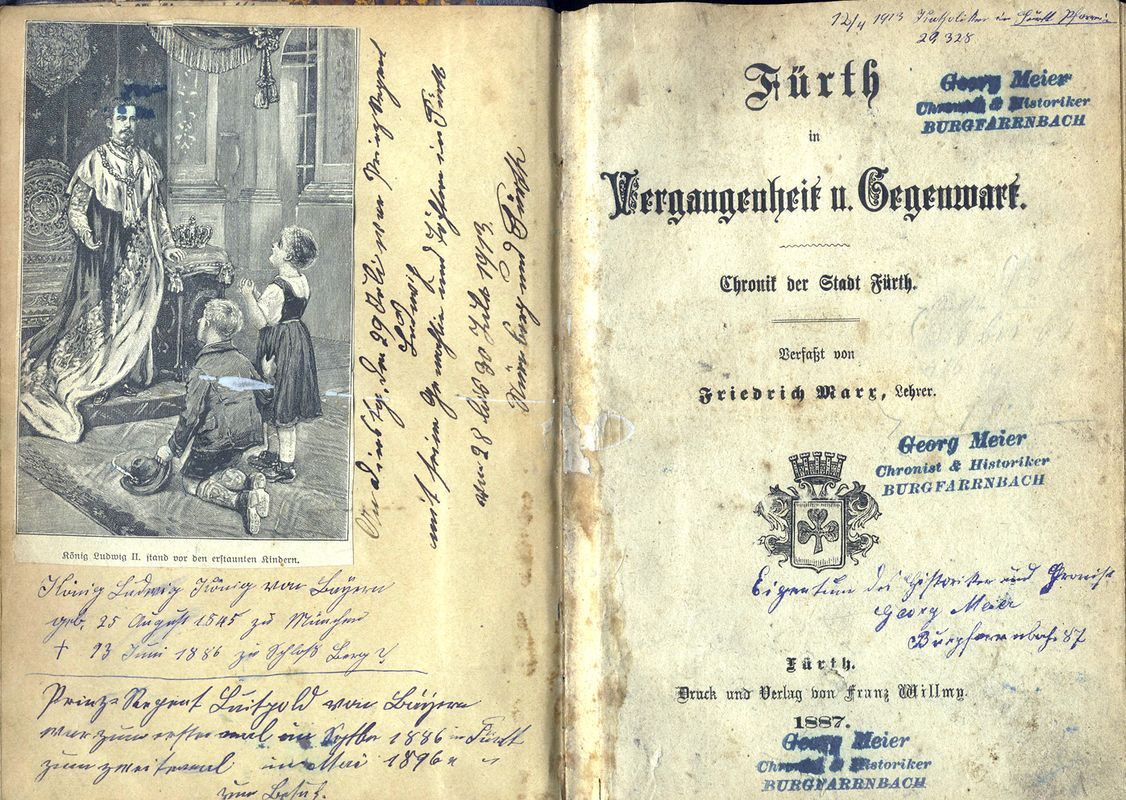 König Ludwig II. stand vor den erstaunten Kindern.
König Ludwig König von Bayern
geb. 25 August 1545 zu München
† 13 Juni 1886 zu Schloß Berg
Prinz-Regent Luitpold von Bayern
war zum erstemal im Septbr 1886 in Fürth
zum zweitemal im Mai 1896 " "
zur Besuch.
Am Dienstag, den 29 Juli war Prinz Regent
Ludwig
mit seiner Gemahlin und Töchtern in Fürth
vom 28 bis 30 Juli 1913
Nürnberg und Fürth
12/4 1913 Katholiken in Fürth Pfarrei
29,328
Fürth
in
Vergangenheit u. Gegenwart.
Chronik der Stadt Fürth.
Verfaßt von
Friedrich Marx, Lehrer.
Georg Meier
Chronist & Historiker
BURGFARRNBACH
Georg Meier
Chronist & Historiker
BURGFARRNBACH
Eigentum des Historiker und Chronist
Georg Meier
Burgfarrnbach 87
Fürth.
Druck und Verlag von Franz Willmy.
1887.
Georg Meier
Chronist & Historiker
BURGFARRNBACH